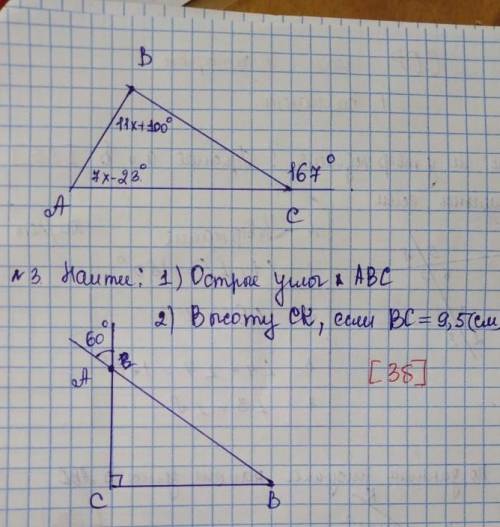 B
11x+100°
7x-23°
167°
A
C
№3 Найти: 1) Острые углы ABC
2) Высоту CK, если BC = 9,5 (см
60°
A
[38]
C
B